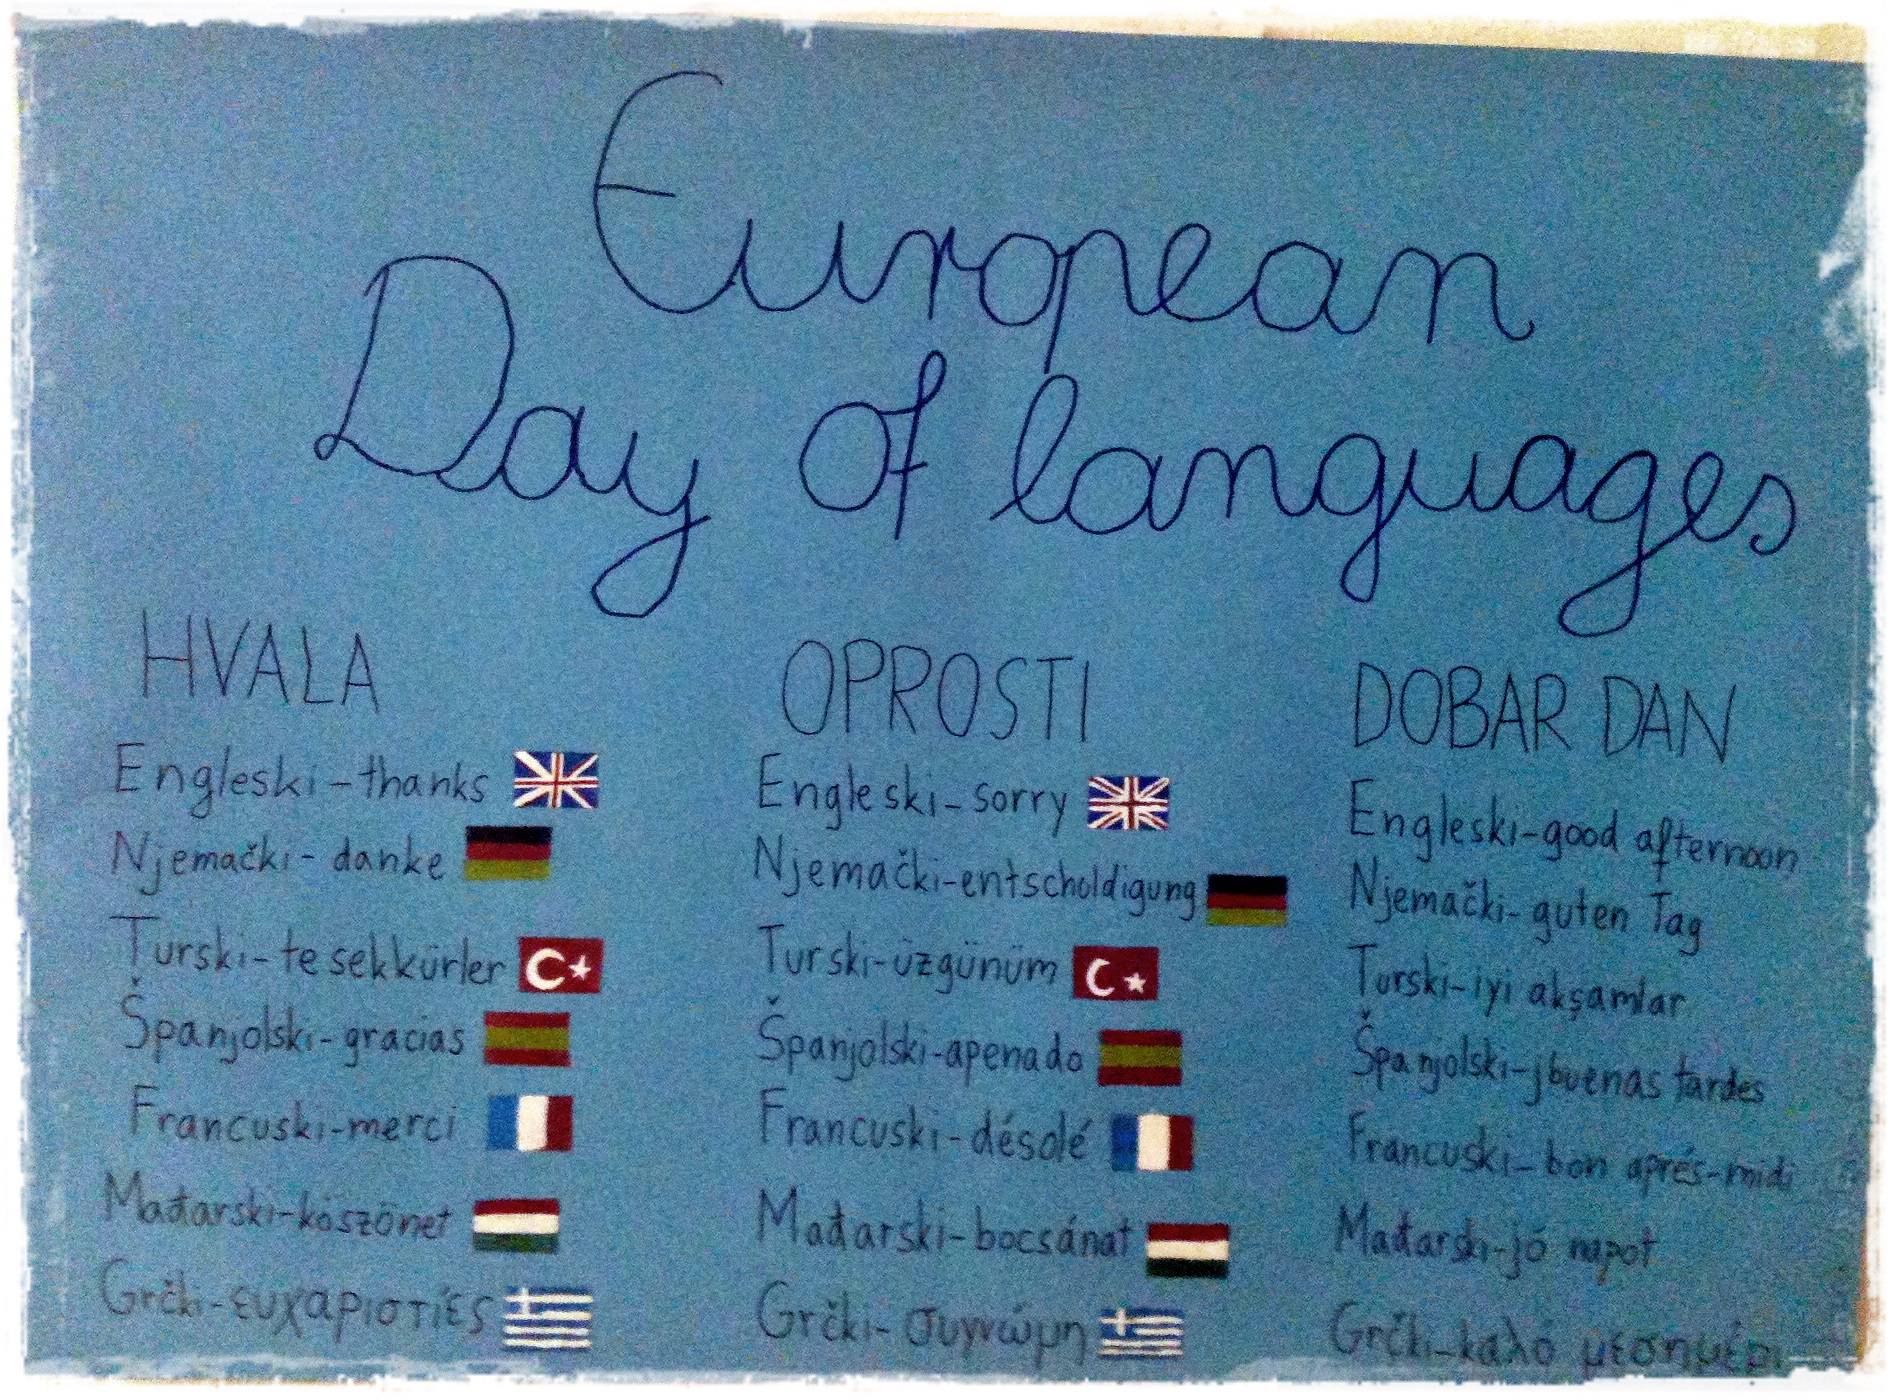 European
Day of languages
HVALA
Engleski-thanks
Njemački-danke
Turski-te sekkürler
Španjolski-gracias
Francuski-merci
Mađarski-köszönet
Grčki-ευχαριστίες
OPROSTI
Engleski-sorry
Njemački-entscholdigung
Turski-üzgünüm
Španjolski-apenado
Francuski-désolé
Mađarski-bocsánat
Grčki-συγνώμη
DOBAR DAN
Engleski-good afternoon
Njemački-guten Tag
Turski-iyi akşamlar
Španjolski-jbuenas tardes
Francuski-bon aprés-midi
Mađarski-jó napot
Grčki-καλό μεσημέρι